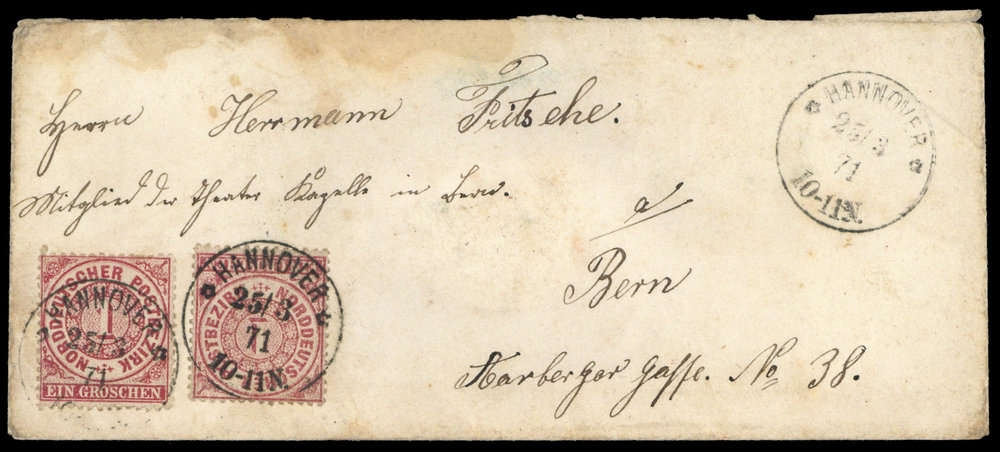 Herrn Herrmann Fritsche.
Mitglied der Theater Kapelle in Bern.
a/
Bern
Aarberger Gasse. No 38.
HANNOVER
25/3
71
10-11N.
NORDDEUTSCHER POSTBEZIRK
1
EIN GROSCHEN
HANNOVER
25/3
71
HANNOVER
25/3
71
10-11N.
NORDDEUTS
STBEZI